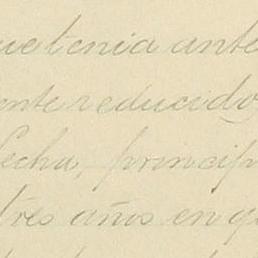 que tenia ante
ente reducido
fecha, princip
tres años en q